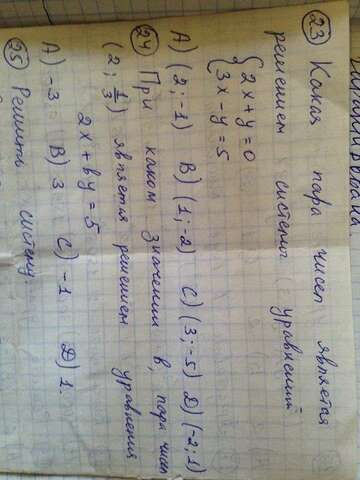 (23) Какая пара чисел является
решением системы уравнений
{2x + y = 0
{3x - y = 5
A) (2; -1) B) (1; -2) C) (3; -5) D) (-2; 1)
(24) При каком значении в, пара чисел
(2; 1/3) является решением уравнения
2x + вy = 5
A) -3 B) 3 C) -1 D) 1.
(25) Решить систему: